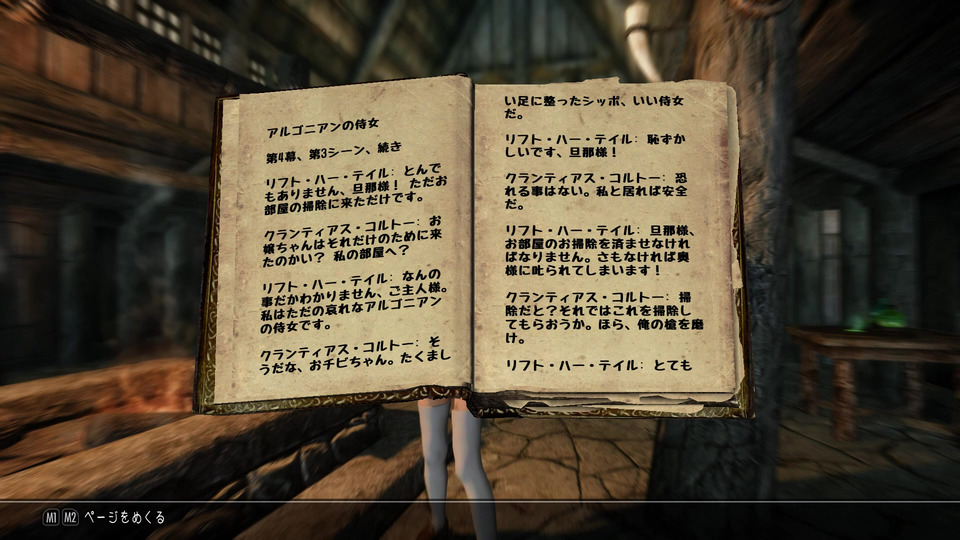 アルゴニアンの侍女
第4幕、第3シーン、続き
リフト・ハー・テイル: とんで
もありません、旦那様! ただお
部屋の掃除に来ただけです。
クランティアス・コルトー: お
嬢ちゃんはそれだけのために来
たのかい? 私の部屋へ?
リフト・ハー・テイル: なんの
事だかわかりません、ご主人様。
私はただの哀れなアルゴニアン
の侍女です。
クランティアス・コルトー: そ
うだな、おチビちゃん。たくまし
い足に整ったシッポ、いい侍女
だ。
リフト・ハー・テイル: 恥ずか
しいです、旦那様!
クランティアス・コルトー: 恐
れる事はない。私と居れば安全
だ。
リフト・ハー・テイル: 旦那様、
お部屋のお掃除を済ませなけれ
ばなりません。さもなければ奥
様に叱られてしまいます!
クランティアス・コルトー: 掃
除だと?それではこれを掃除し
てもらおうか。ほら、俺の槍を磨
け。
リフト・ハー・テイル: とても
M1 M2 ページをめくる